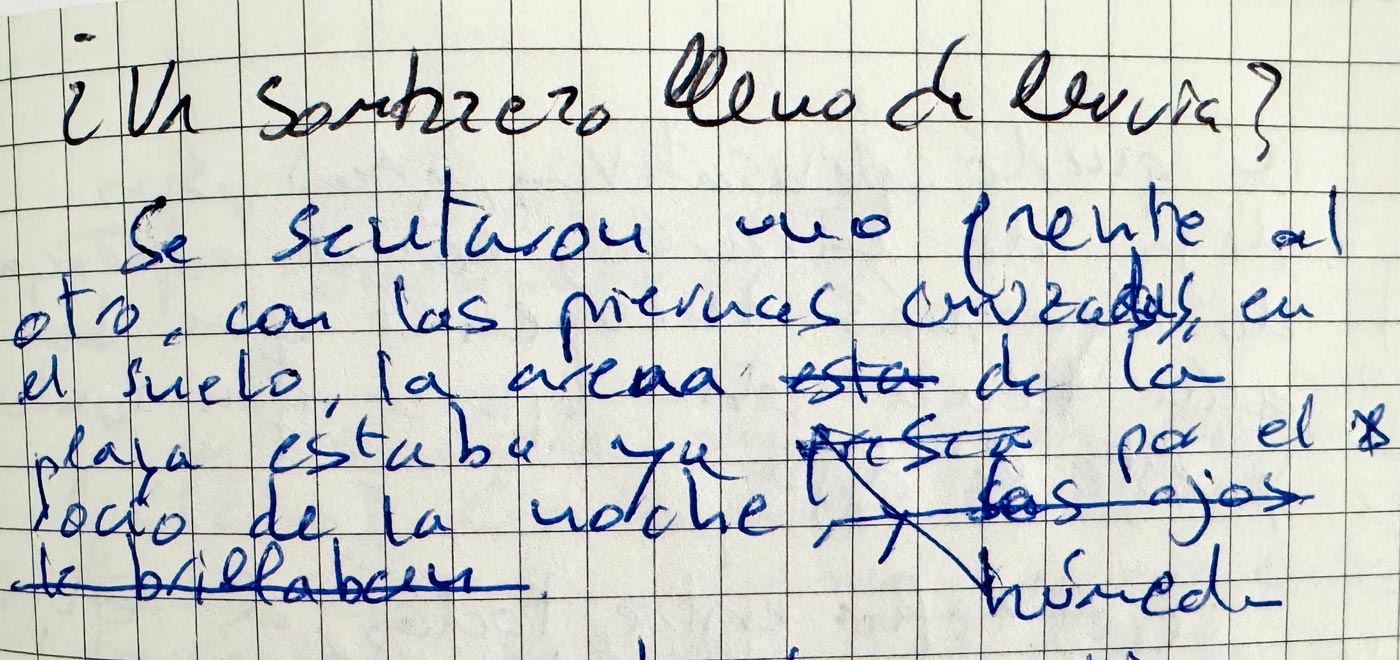 ¿Un sombrero lleno de lluvia?
Se sentaron uno frente al
otro, con las piernas cruzadas, en
el suelo, la arena esta de la
playa estaba ya fresca por el
rocío de la noche, los ojos
le brillaban.
húmeda